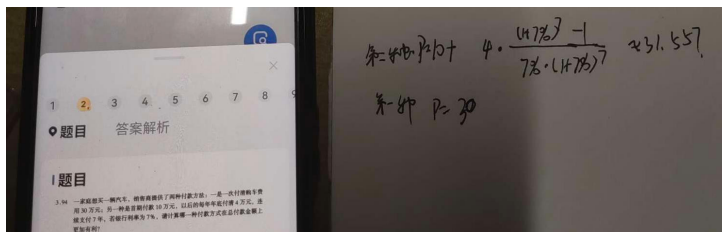 1 2 3 4 5 6 7 8 9
题目 答案解析
题目
3.94 一家庭想买一辆汽车，销售商提供了两种付款方法：一是一次付清购车费
用30万元；另一种是首期付款10万元，以后的每年年底付清4万元，连
续支付7年，若银行利率为7%，请计算哪一种付款方式在总付款金额上
更加有利?
第二种 P=10+ 4·((1+7%)^7 -1)/(7%·(1+7%)^7) ≈31.557
第一种 P=30